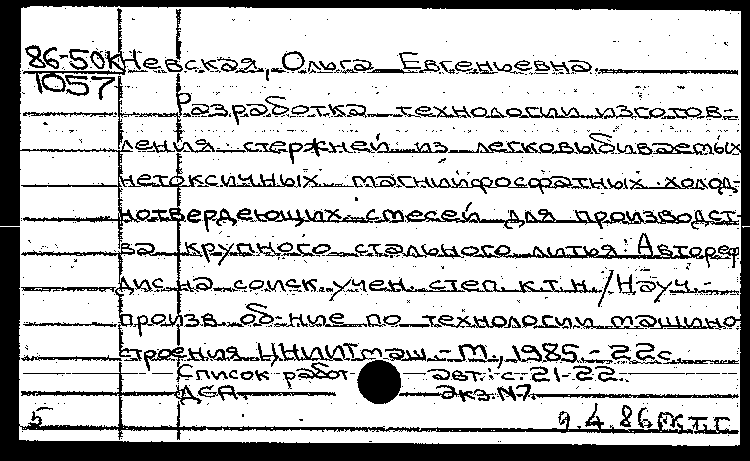 86-50к Невская, Ольга Евгеньевна.
1057
Разработка технологии изготов-
ления стержней из легковыбиваемых
нетоксичных магнийфосфатных холод-
нотвердеющих смесей для производст-
ва крупного стального литья: Автореф
дис на соиск. учен. степ. к.т.н./Науч.-
произв об-ние по технологии машино
строения ЦНИИТмаш.-М., 1985.-22с.
Список работ авт.: с. 21-22.
ДСП. Экз.N7.
5 9.4.86